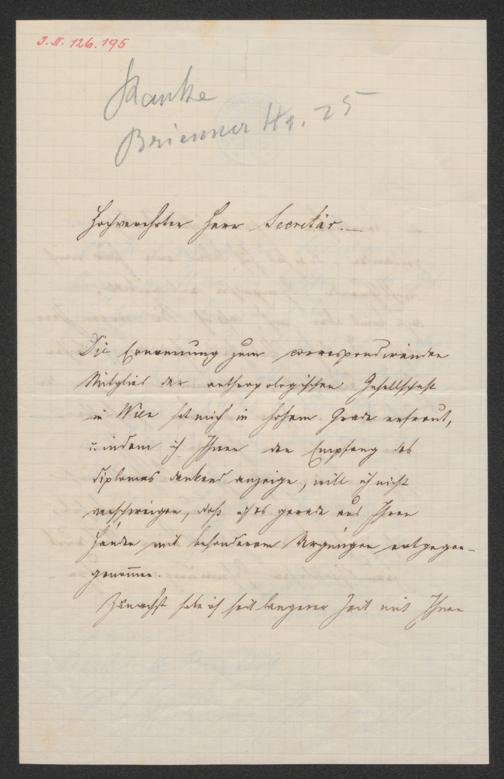 J.N. 126.195
Ranke
Brienner Str. 25
Hochverehrter Herr Secretär.
Die Ernennung zum correspondirenden
Mitglied der anthropologischen Gesellschaft
in Wien hat mich in hohem Grade erfreut,
u. indem ich Ihnen den Empfang des
Diplomes dankend anzeige, will ich nicht
verschweigen, daß ich es gerade aus Ihren
Händen mit besonderem Vergnügen entgegen-
genommen.
Zunächst habe ich seit langerer Zeit mit Ihnen